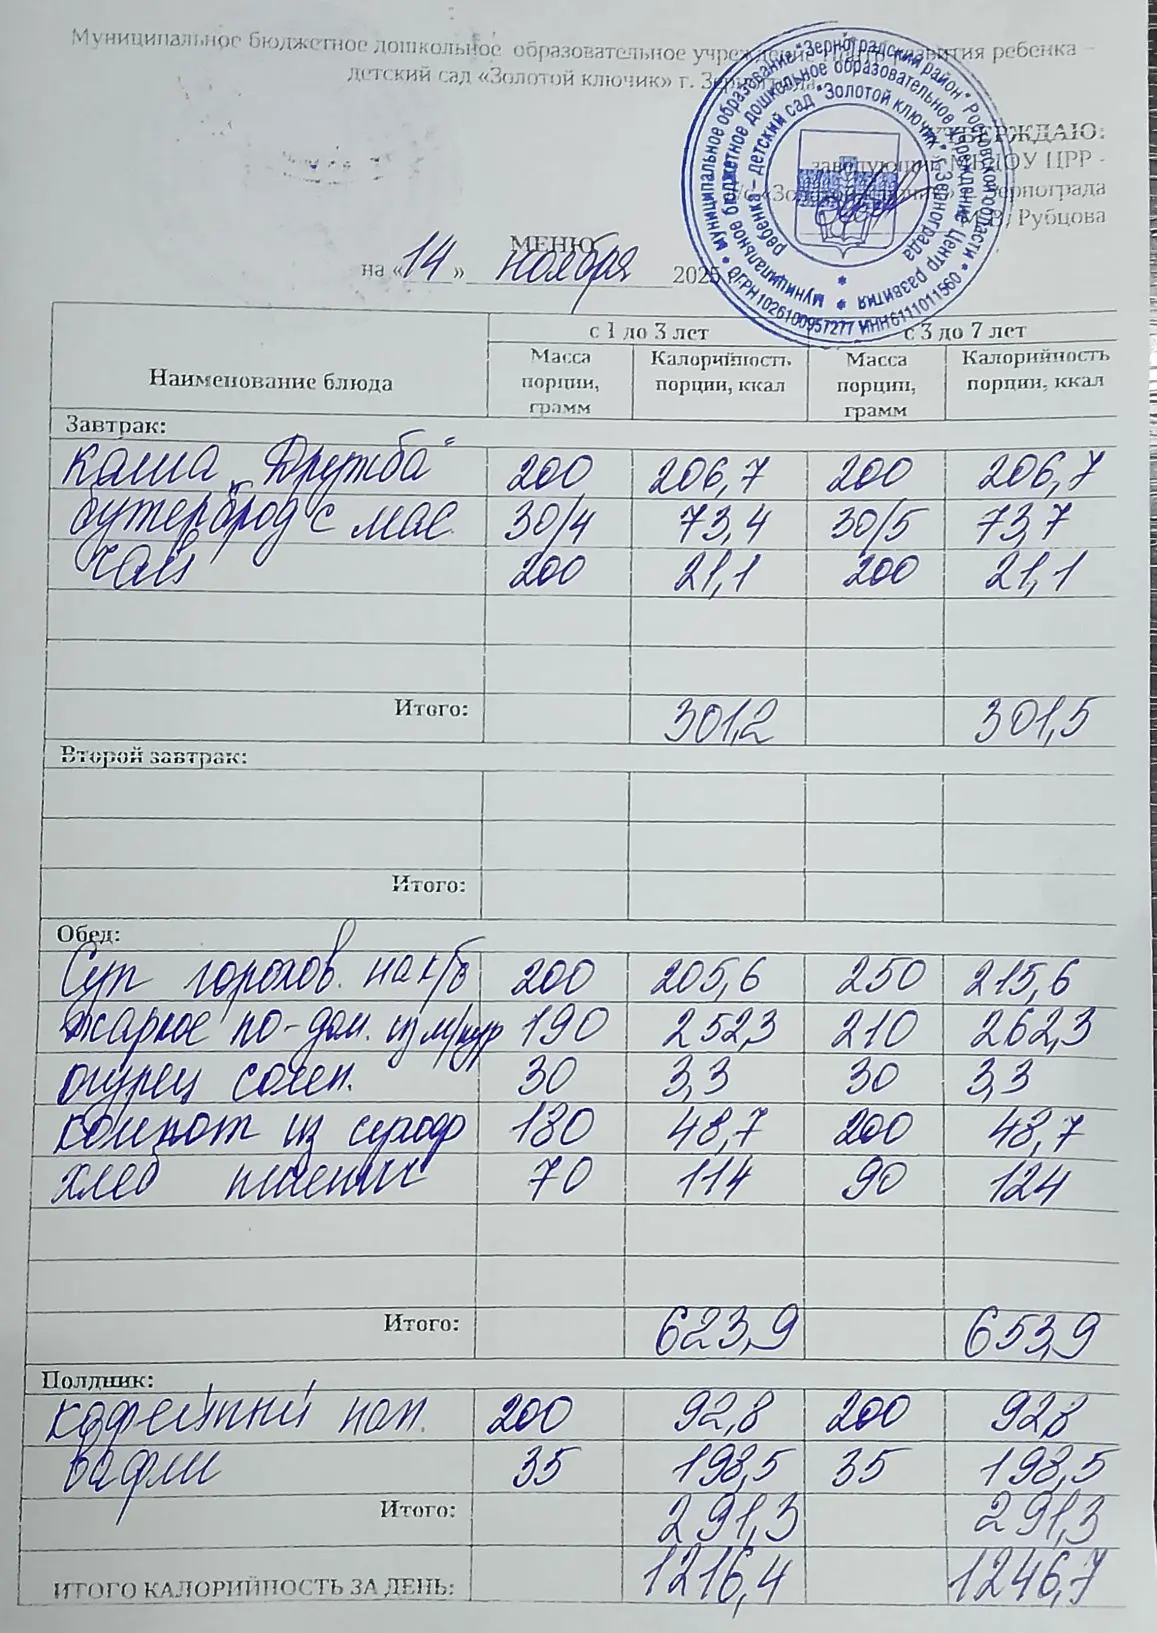 Муниципальное бюджетное дошкольное образовательное учреждение центр развития ребенка –
детский сад «Золотой ключик» г. Зернограда
УТВЕРЖДАЮ:
заведующий МБДОУ ЦРР -
д/с «Золотой ключик» г. Зернограда
М.В. Рубцова
Муниципальное образование "Зерноградский район" Ростовской области * ОГРН 1026100957277 ИНН 6111011560 *
Муниципальное бюджетное дошкольное образовательное учреждение Центр развития
ребенка – детский сад "Золотой ключик" г. Зернограда
МЕНЮ
на « 14 » ноября 2025
Наименование блюда с 1 до 3 лет с 3 до 7 лет
Масса порции, грамм Калорийность порции, ккал Масса порции, грамм Калорийность порции, ккал
Завтрак:
каша „Дружба" 200 206,7 200 206,7
бутерброд с мас. 30/4 73,4 30/5 73,7
чай 200 21,1 200 21,1
Итого: 301,2 301,5
Второй завтрак:
Итого:
Обед:
Суп горохов. на к/б 200 205,6 250 215,6
жаркое по-дом. из м/кур 190 252,3 210 262,3
огурец солен. 30 3,3 30 3,3
компот из сухоф 180 48,7 200 48,7
хлеб пшенич 70 114 90 124
Итого: 623,9 653,9
Полдник:
кофейный нап. 200 92,8 200 92,8
вафли 35 198,5 35 198,5
Итого: 291,3 291,3
ИТОГО КАЛОРИЙНОСТЬ ЗА ДЕНЬ: 1216,4 1246,7